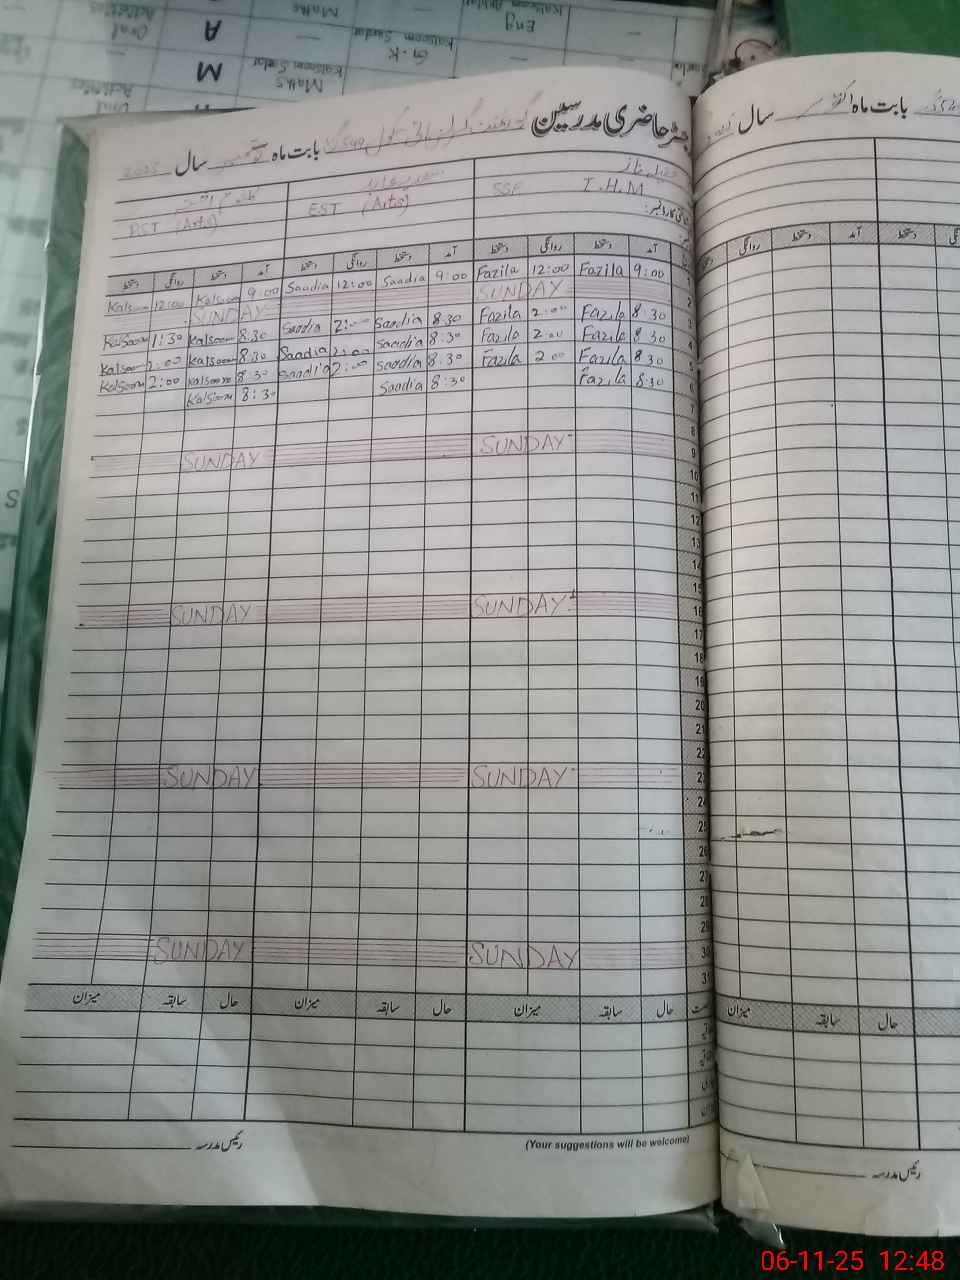 Eng
Maths
Oral Activities
A
G.K
M
Maths
رجسٹر حاضری مدرسین
بابت ماہ نومبر سال 2025
SSE I.H.M
EST (Arts)
PST (Arts)
آمد دستخط روانگی دستخط آمد دستخط روانگی دستخط آمد دستخط روانگی دستخط
9:00 Fazila 12:00 Fazila 9:00 Saadia 12:00 Saadia 9:00 Kalsoom 12:00 Kalsoom
2 SUNDAY SUNDAY
3 8:30 Fazila 2:00 Fazila 8:30 Saadia 2:00 Saadia 8:30 Kalsoom 1:30 Kalsoom
4 8:30 Fazila 2:00 Fazila 8:30 Saadia 2:00 Saadia 8:30 Kalsoom 2:00 Kalsoom
5 8:30 Fazila 2:00 Fazila 8:30 Saadia 2:00 Saadia 8:30 Kalsoom 2:00 Kalsoom
6 8:30 Fazila 8:30 Saadia 8:30 Kalsoom
7
8
9 SUNDAY SUNDAY
10
11
12
13
14
15
16 SUNDAY SUNDAY
17
18
19
20
21
22
23 SUNDAY SUNDAY
24
25
26
27
28
29
30 SUNDAY SUNDAY
31
حال سابقہ میزان حال سابقہ میزان حال سابقہ میزان
(Your suggestions will be welcome)
رئیس مدرسہ
بابت ماہ اکتوبر سال
دستخط آمد دستخط روانگی
حال سابقہ میزان
رئیس مدرسہ
06-11-25 12:48